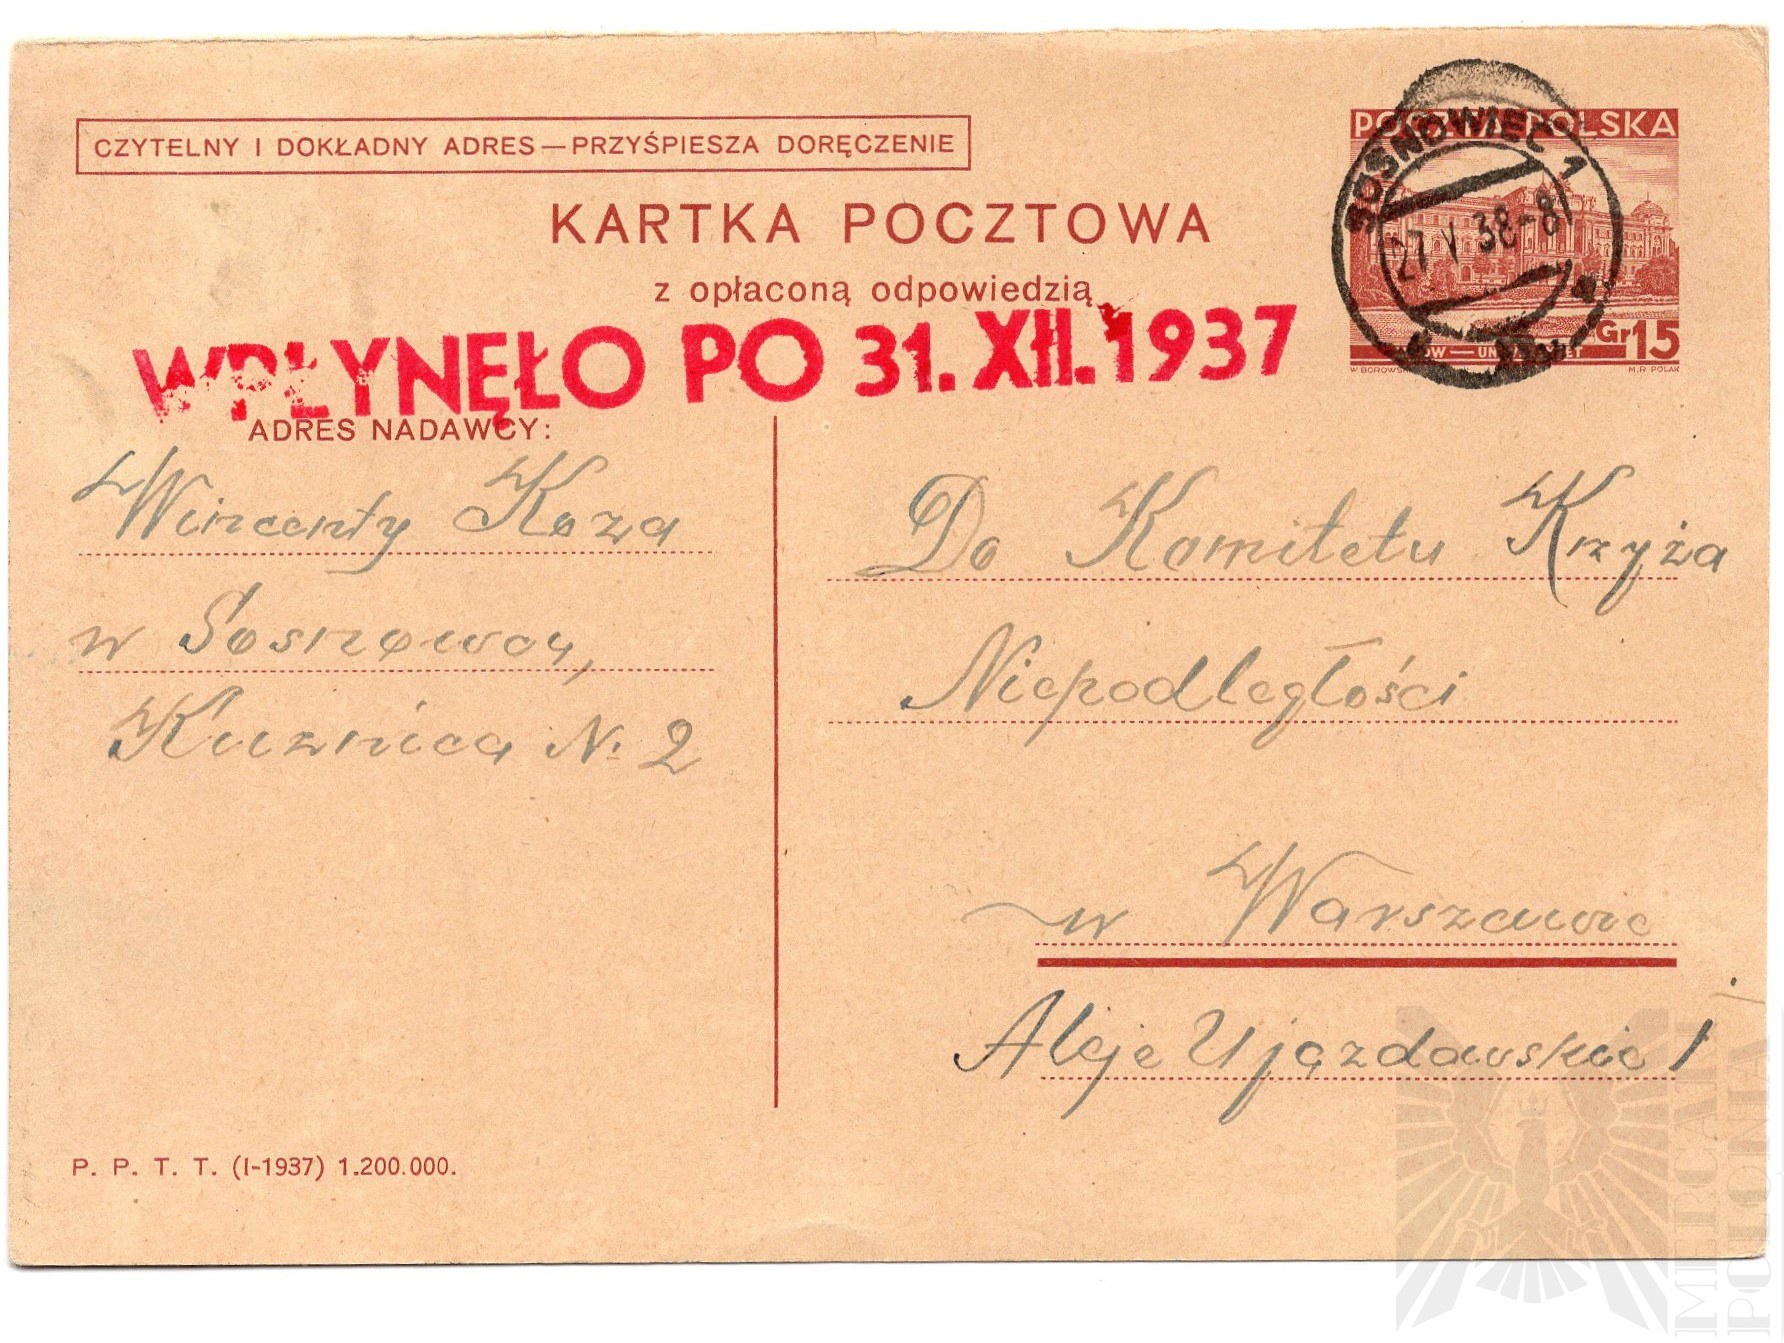 CZYTELNY I DOKŁADNY ADRES—PRZYŚPIESZA DORĘCZENIE
POCZTA POLSKA
SOSNOWIEC 1
27 V 38-8
KARTKA POCZTOWA
z opłaconą odpowiedzią
Gr15
W BOROWSKI
M.R POLAK
WPŁYNĘŁO PO 31. XII. 1937
ADRES NADAWCY:
Wincenty Koza
w Sosnowcu,
Kuznica N: 2
Do Komitetu Krzyża
Niepodległości
w Warszawie
Aleje Ujazdowskie 1
P. P. T. T. (I-1937) 1.200.000.
AMERICAN
POLONIA